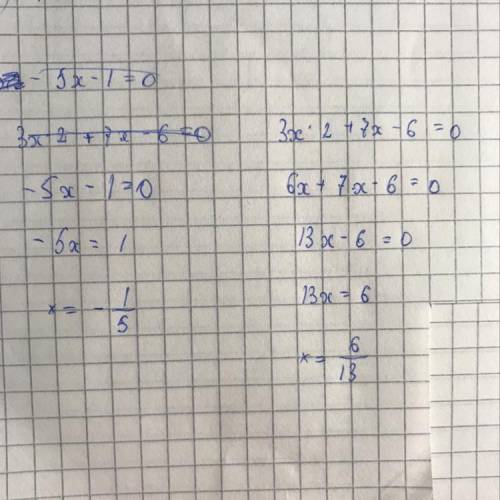 - 5x - 1 = 0
3x · 2 + 7x - 6 = 0
-5x - 1 = 0
-5x = 1
x = - 1/5
3x · 2 + 7x - 6 = 0
6x + 7x - 6 = 0
13x - 6 = 0
13x = 6
x = 6/13